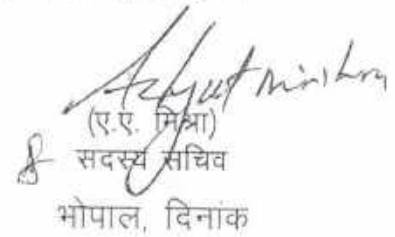 Achyut Mishra
(ए.ए. मिश्रा)
सदस्य सचिव
भोपाल, दिनांक